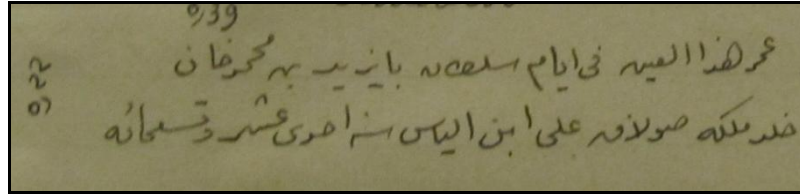 عمر هذا العين فى ايام سلطان بايزيد بن محمد خان
خلد ملكه صولاق على ابن الياس سنه احدى عشر وتسعمائه